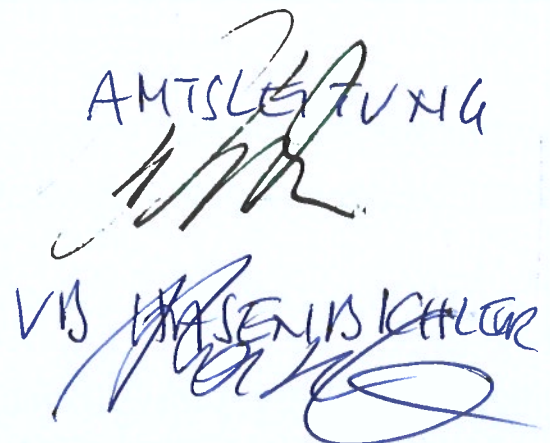 AMTSLEITUNG
VB HASENBICHLER